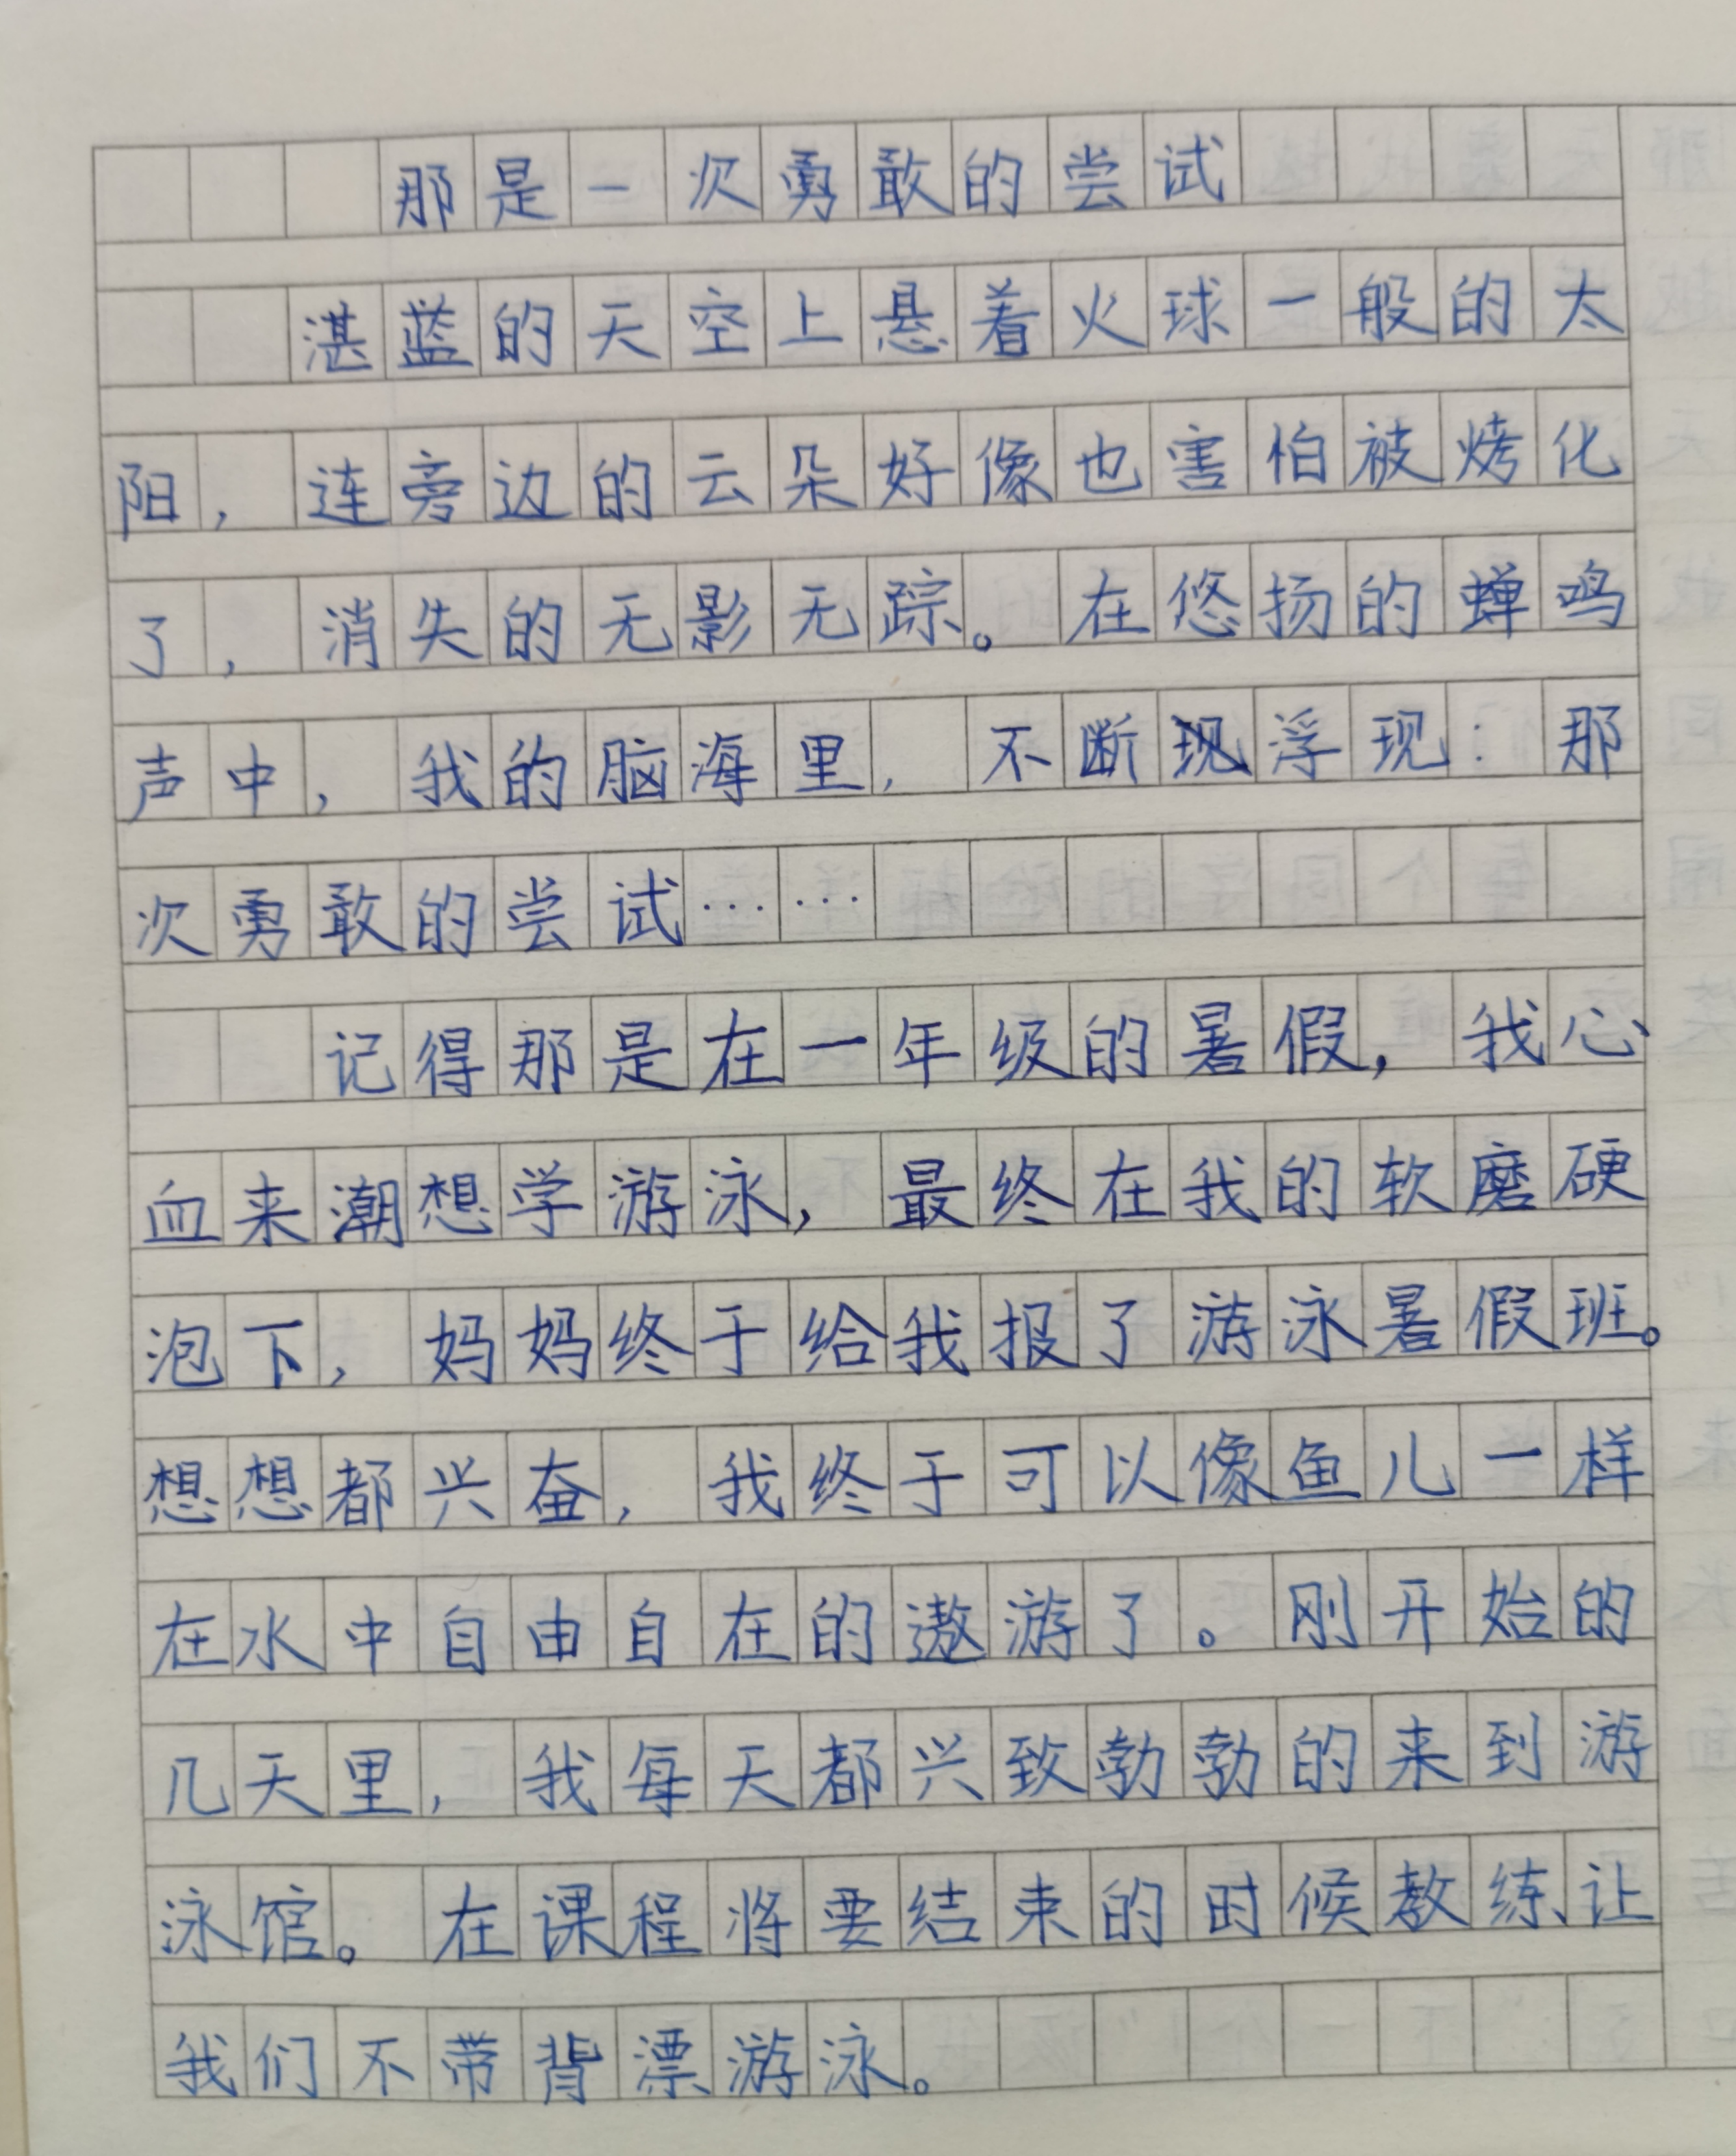 那是一次勇敢的尝试
湛蓝的天空上悬着火球一般的太
阳，连旁边的云朵好像也害怕被烤化
了，消失的无影无踪。在悠扬的蝉鸣
声中，我的脑海里，不断浮现：那
次勇敢的尝试……
记得那是在一年级的暑假，我心
血来潮想学游泳，最终在我的软磨硬
泡下，妈妈终于给我报了游泳暑假班。
想想都兴奋，我终于可以像鱼儿一样
在水中自由自在的遨游了。刚开始的
几天里，我每天都兴致勃勃的来到游
泳馆。在课程将要结束的时候教练让
我们不带背漂游泳。